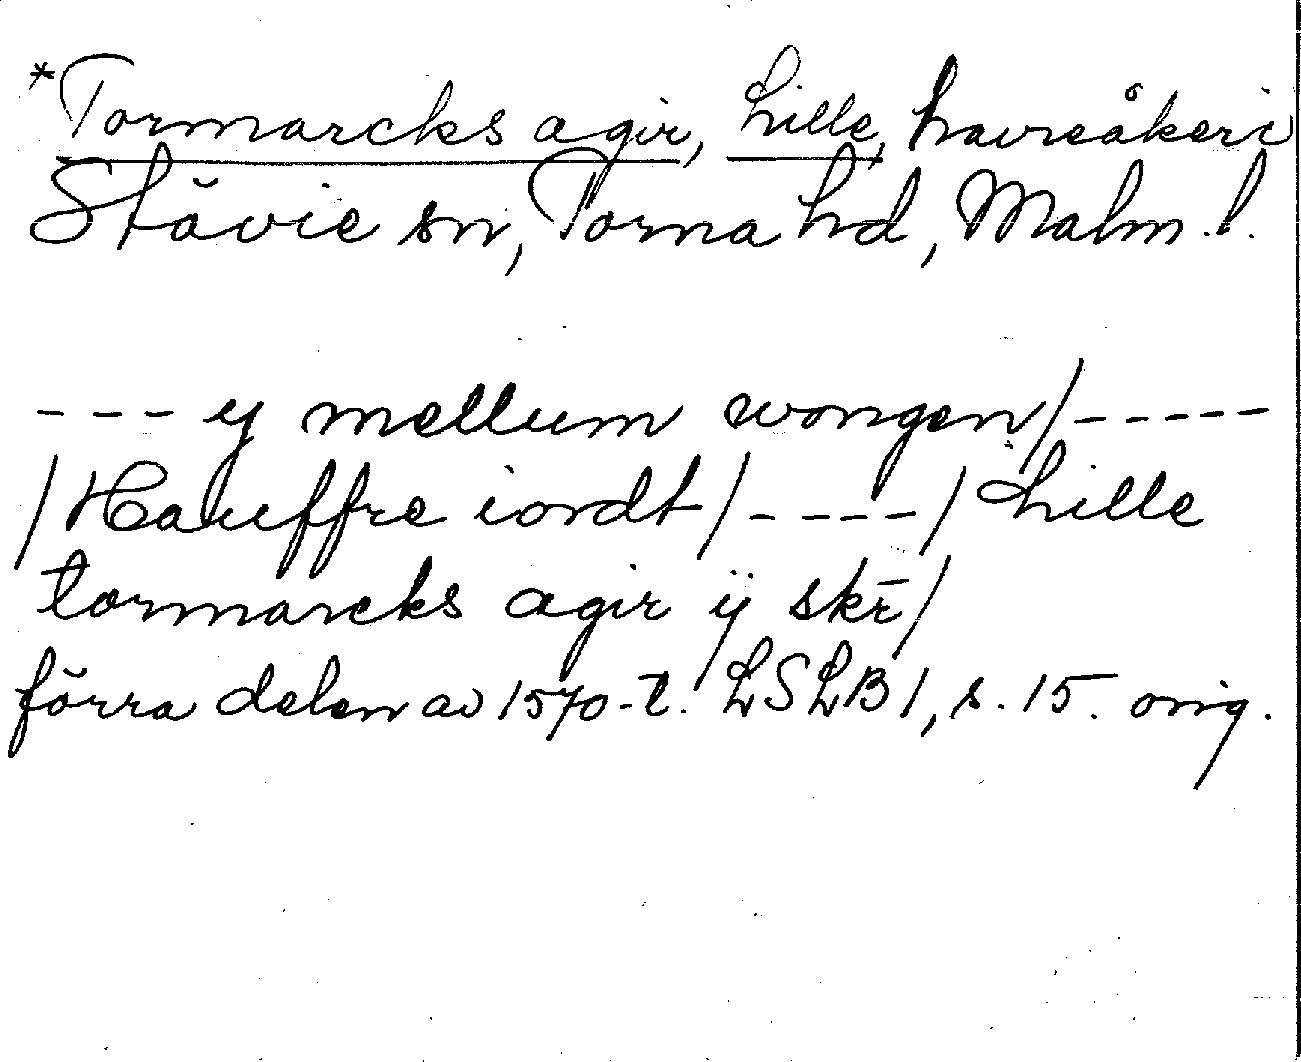 *Tormarcks agir, Lille, havreåker i
Stävie sn, Torna hd, Malm. l.
--- ÿ mellum wongen/-----
/Hauffre iordt/----/Lille
tormarcks agir ÿ skr̄/
förra delen av 1570-t. LSLB 1, s. 15. orig.